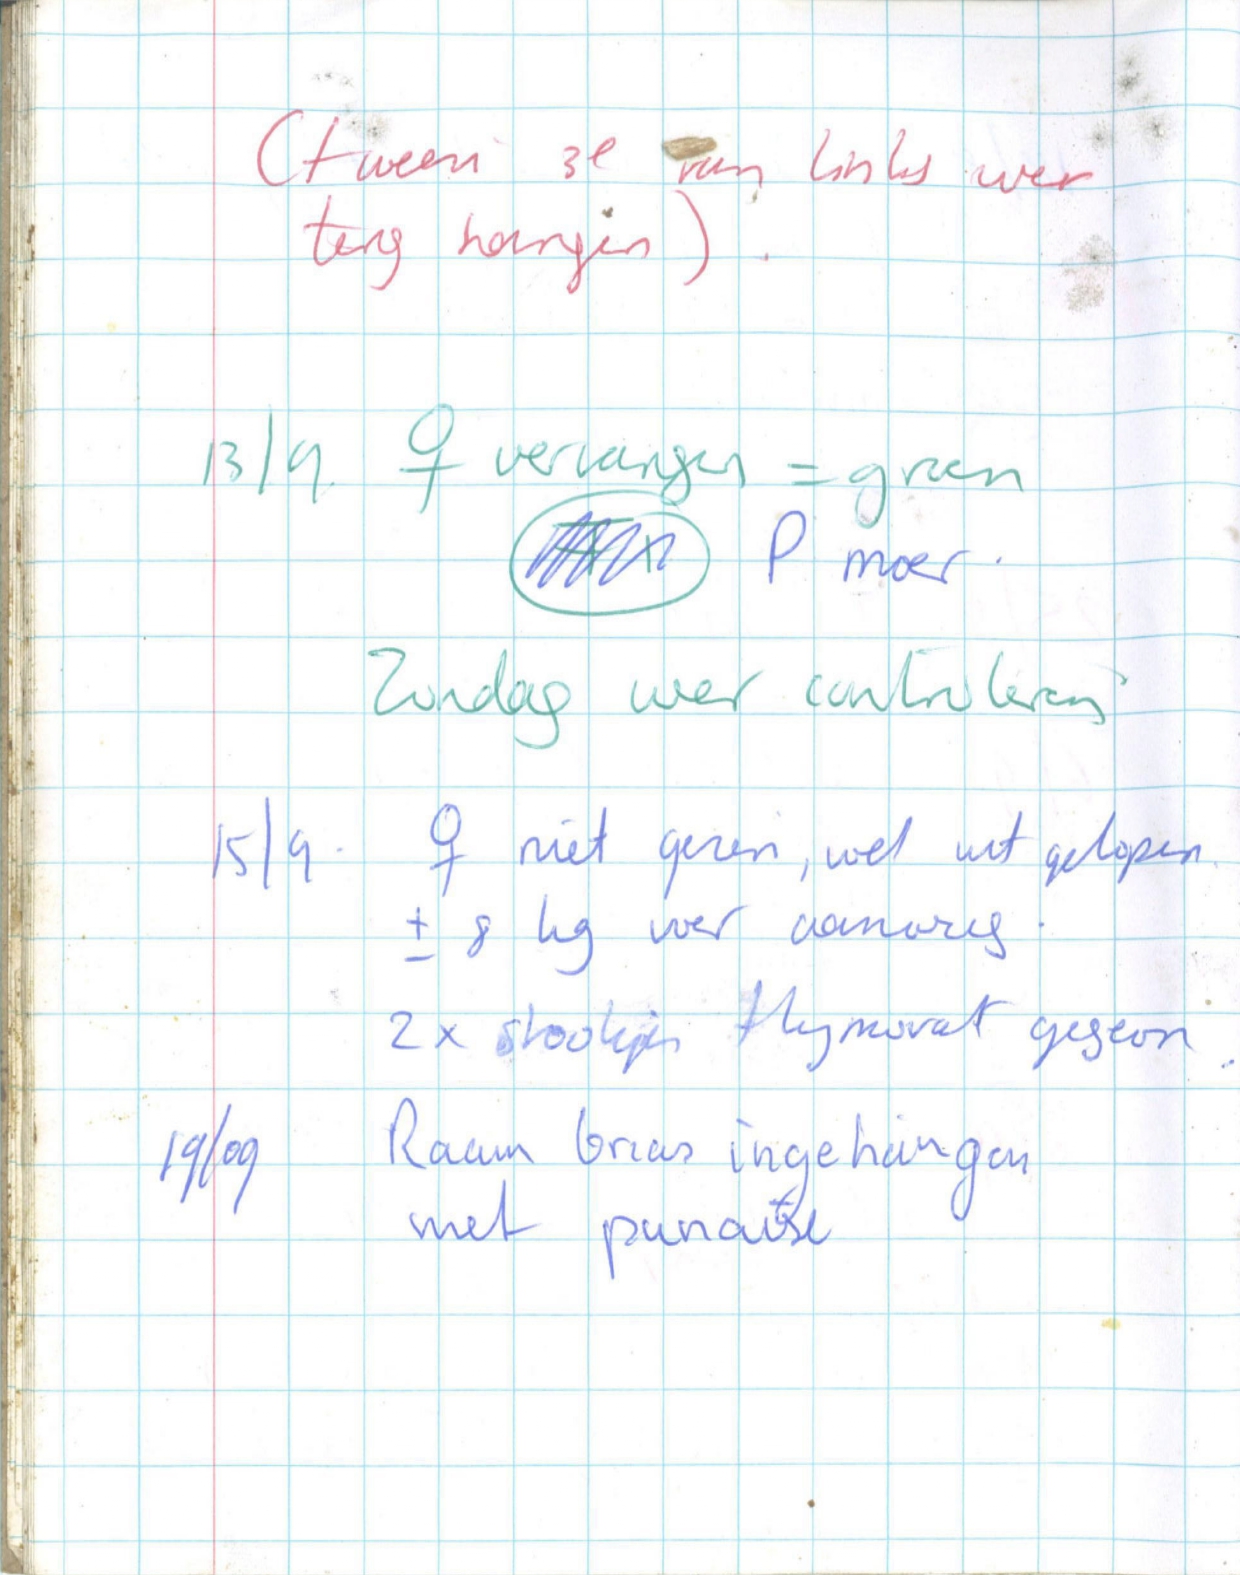 (tweeri 3e van links weer
terg hangen).
13/9. ♀ vervangen = groen
P moer.
Zondag weer controleren
15/9. ♀ niet gezien, wel uit gelopen.
± 8 kg voer aanwezig.
2x strookjes thymovat gegeven.
19/09 Raam broas ingehangen
met punaise